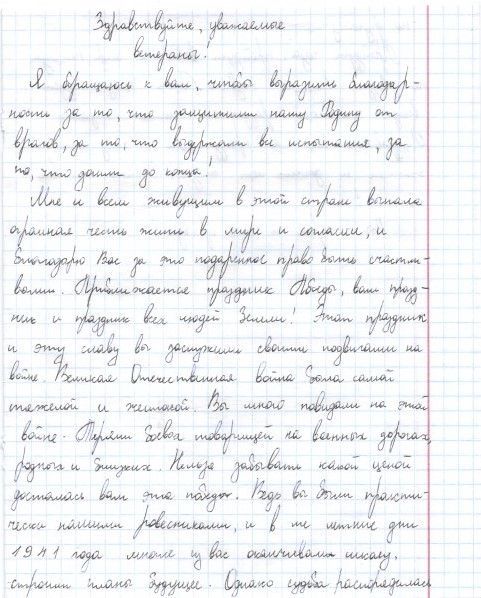 Здравствуйте, уважаемые
ветераны!
Я обращаюсь к вам, чтобы выразить благодар-
ность за то, что защитили нашу Родину от
врагов, за то, что выдержали все испытания, за
то, что дошли до конца!
Мне и всем живущим в этой стране выпала
огромная честь жить в мире и согласии, и
благодарю Вас за это подаренное право быть счастли-
выми. Приближается праздник Победы, ваш празд-
ник и праздник всех людей Земли! Этот праздник
и эту славу вы заслужили своими подвигами на
войне. Великая Отечественная война была самой
тяжелой и жестокой. Вы много повидали на этой
войне. Теряли боевых товарищей на военных дорогах,
родных и близких. Нельзя забывать какой ценой
досталась вам эта победа. Ведь вы были практи-
чески нашими ровестниками, и в те летние дни
1941 года многие из вас оканчивали школу,
строили планы будущее. Однако судьба распорядилась